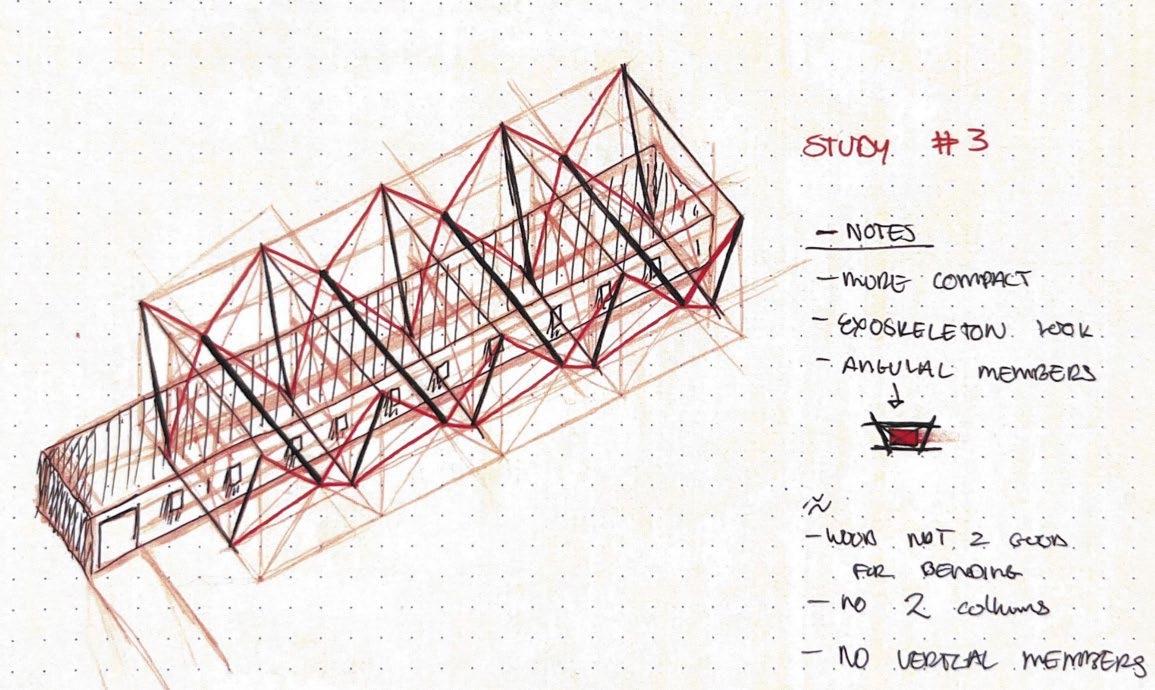 STUDY #3
- NOTES
- MORE COMPACT
- EXOSKELETON LOOK.
- ANGULAL MEMBERS
- WOOD NOT 2 GOOD
FOR BENDING
- NO 2 collums
- NO VERTICAL MEMBERS